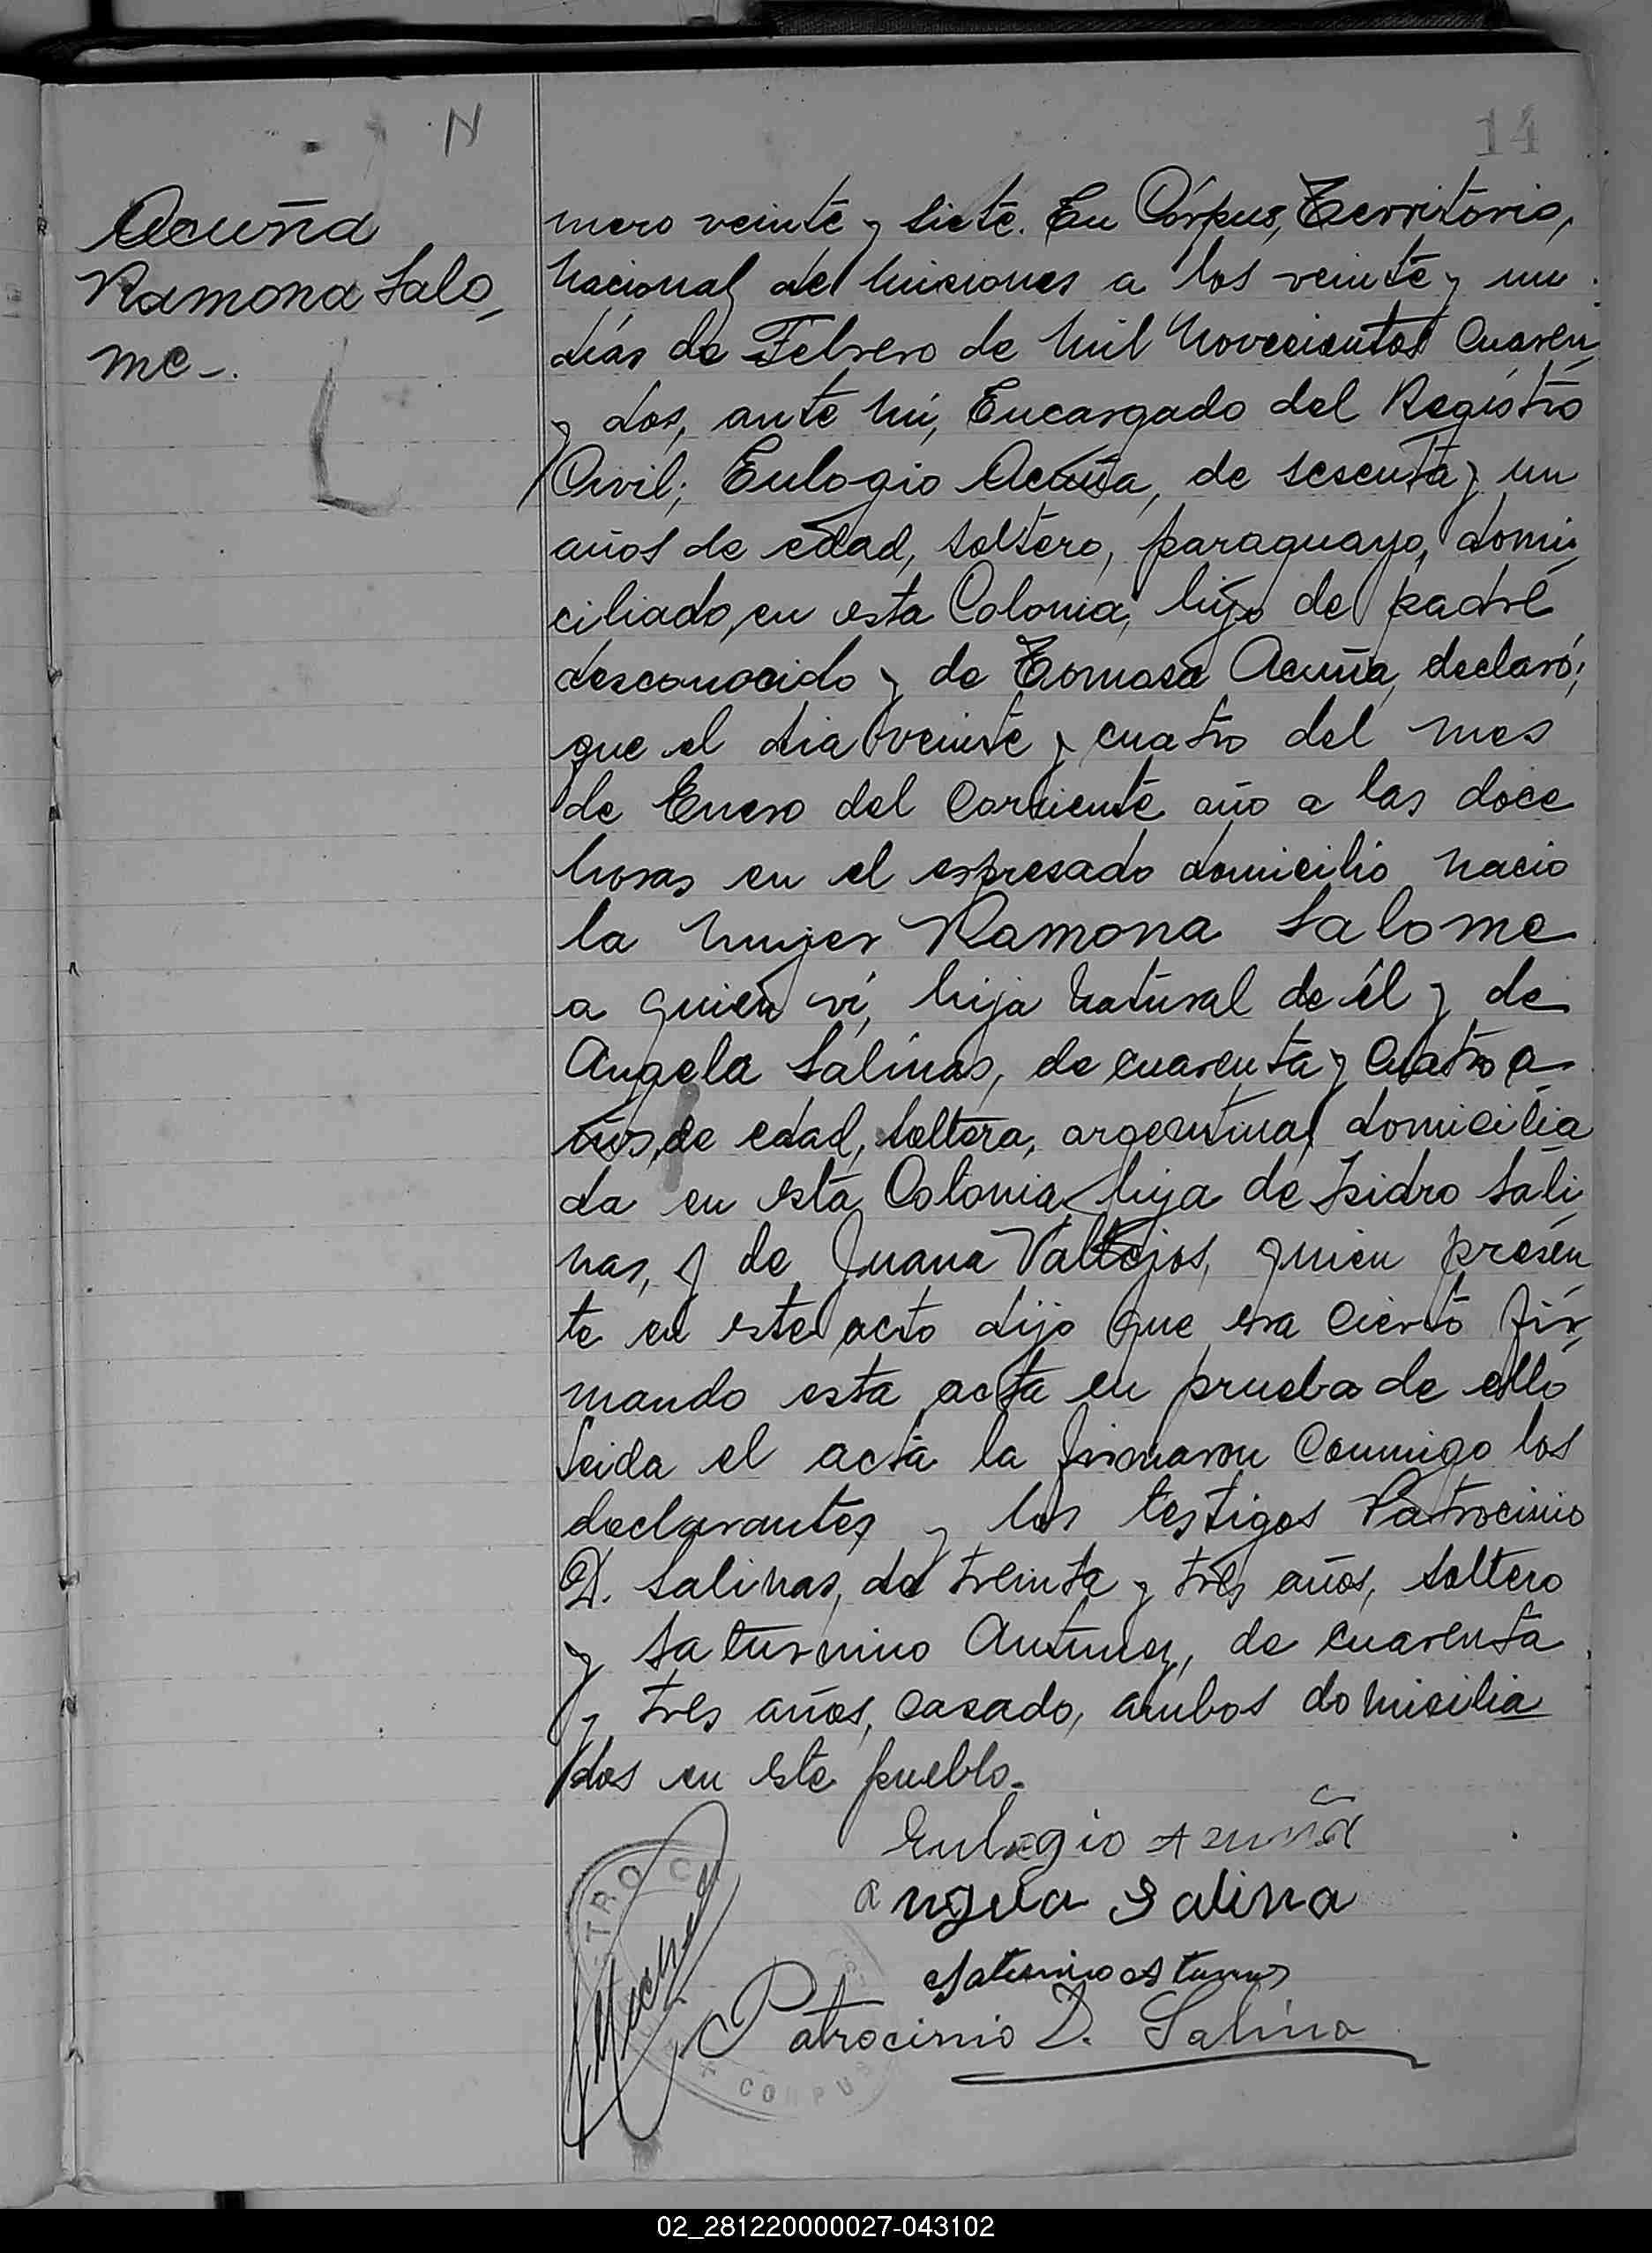 N
14
Acuña
Ramona Salo
me.
mero veinte y siete. En Córpus, Territorio,
Nacional de Misiones a los veinte y un
días de Febrero de mil novecientos cuaren
y dos, ante mí, Encargado del Registro
Civil; Eulogio Acuña, de sesenta y un
años de edad, soltero, paraguayo, domi
ciliado, en esta Colonia, hijo de padre
desconocido y de Tomasa Acuña, declaró;
que el dia veinte y cuatro del mes
de Enero del corriente año a las doce
horas en el espresado domicilio nacio
la mujer Ramona Salome
a quien ví, hija natural de él y de
Angela Salinas, de cuarenta y cuatro a
ños, de edad, soltera, argentina, domicilia
da en esta Colonia hija de Isidro Sali
nas, y de Juana Vallejos, quien presen
te en este acto dijo que era cierto fir
mando esta acta en prueba de ello
Leida el acta la firmaron conmigo los
declarantes y los testigos Patrocinio
D. Salinas, de treinta y tres años, soltero
y Saturnino Antunez, de cuarenta
y tres años, casado, ambos domicilia
dos en este pueblo.
Eulogio Acuña
Angela Salina
Patrocinio D. Salina
TRO C
CORPUS
02_281220000027-043102